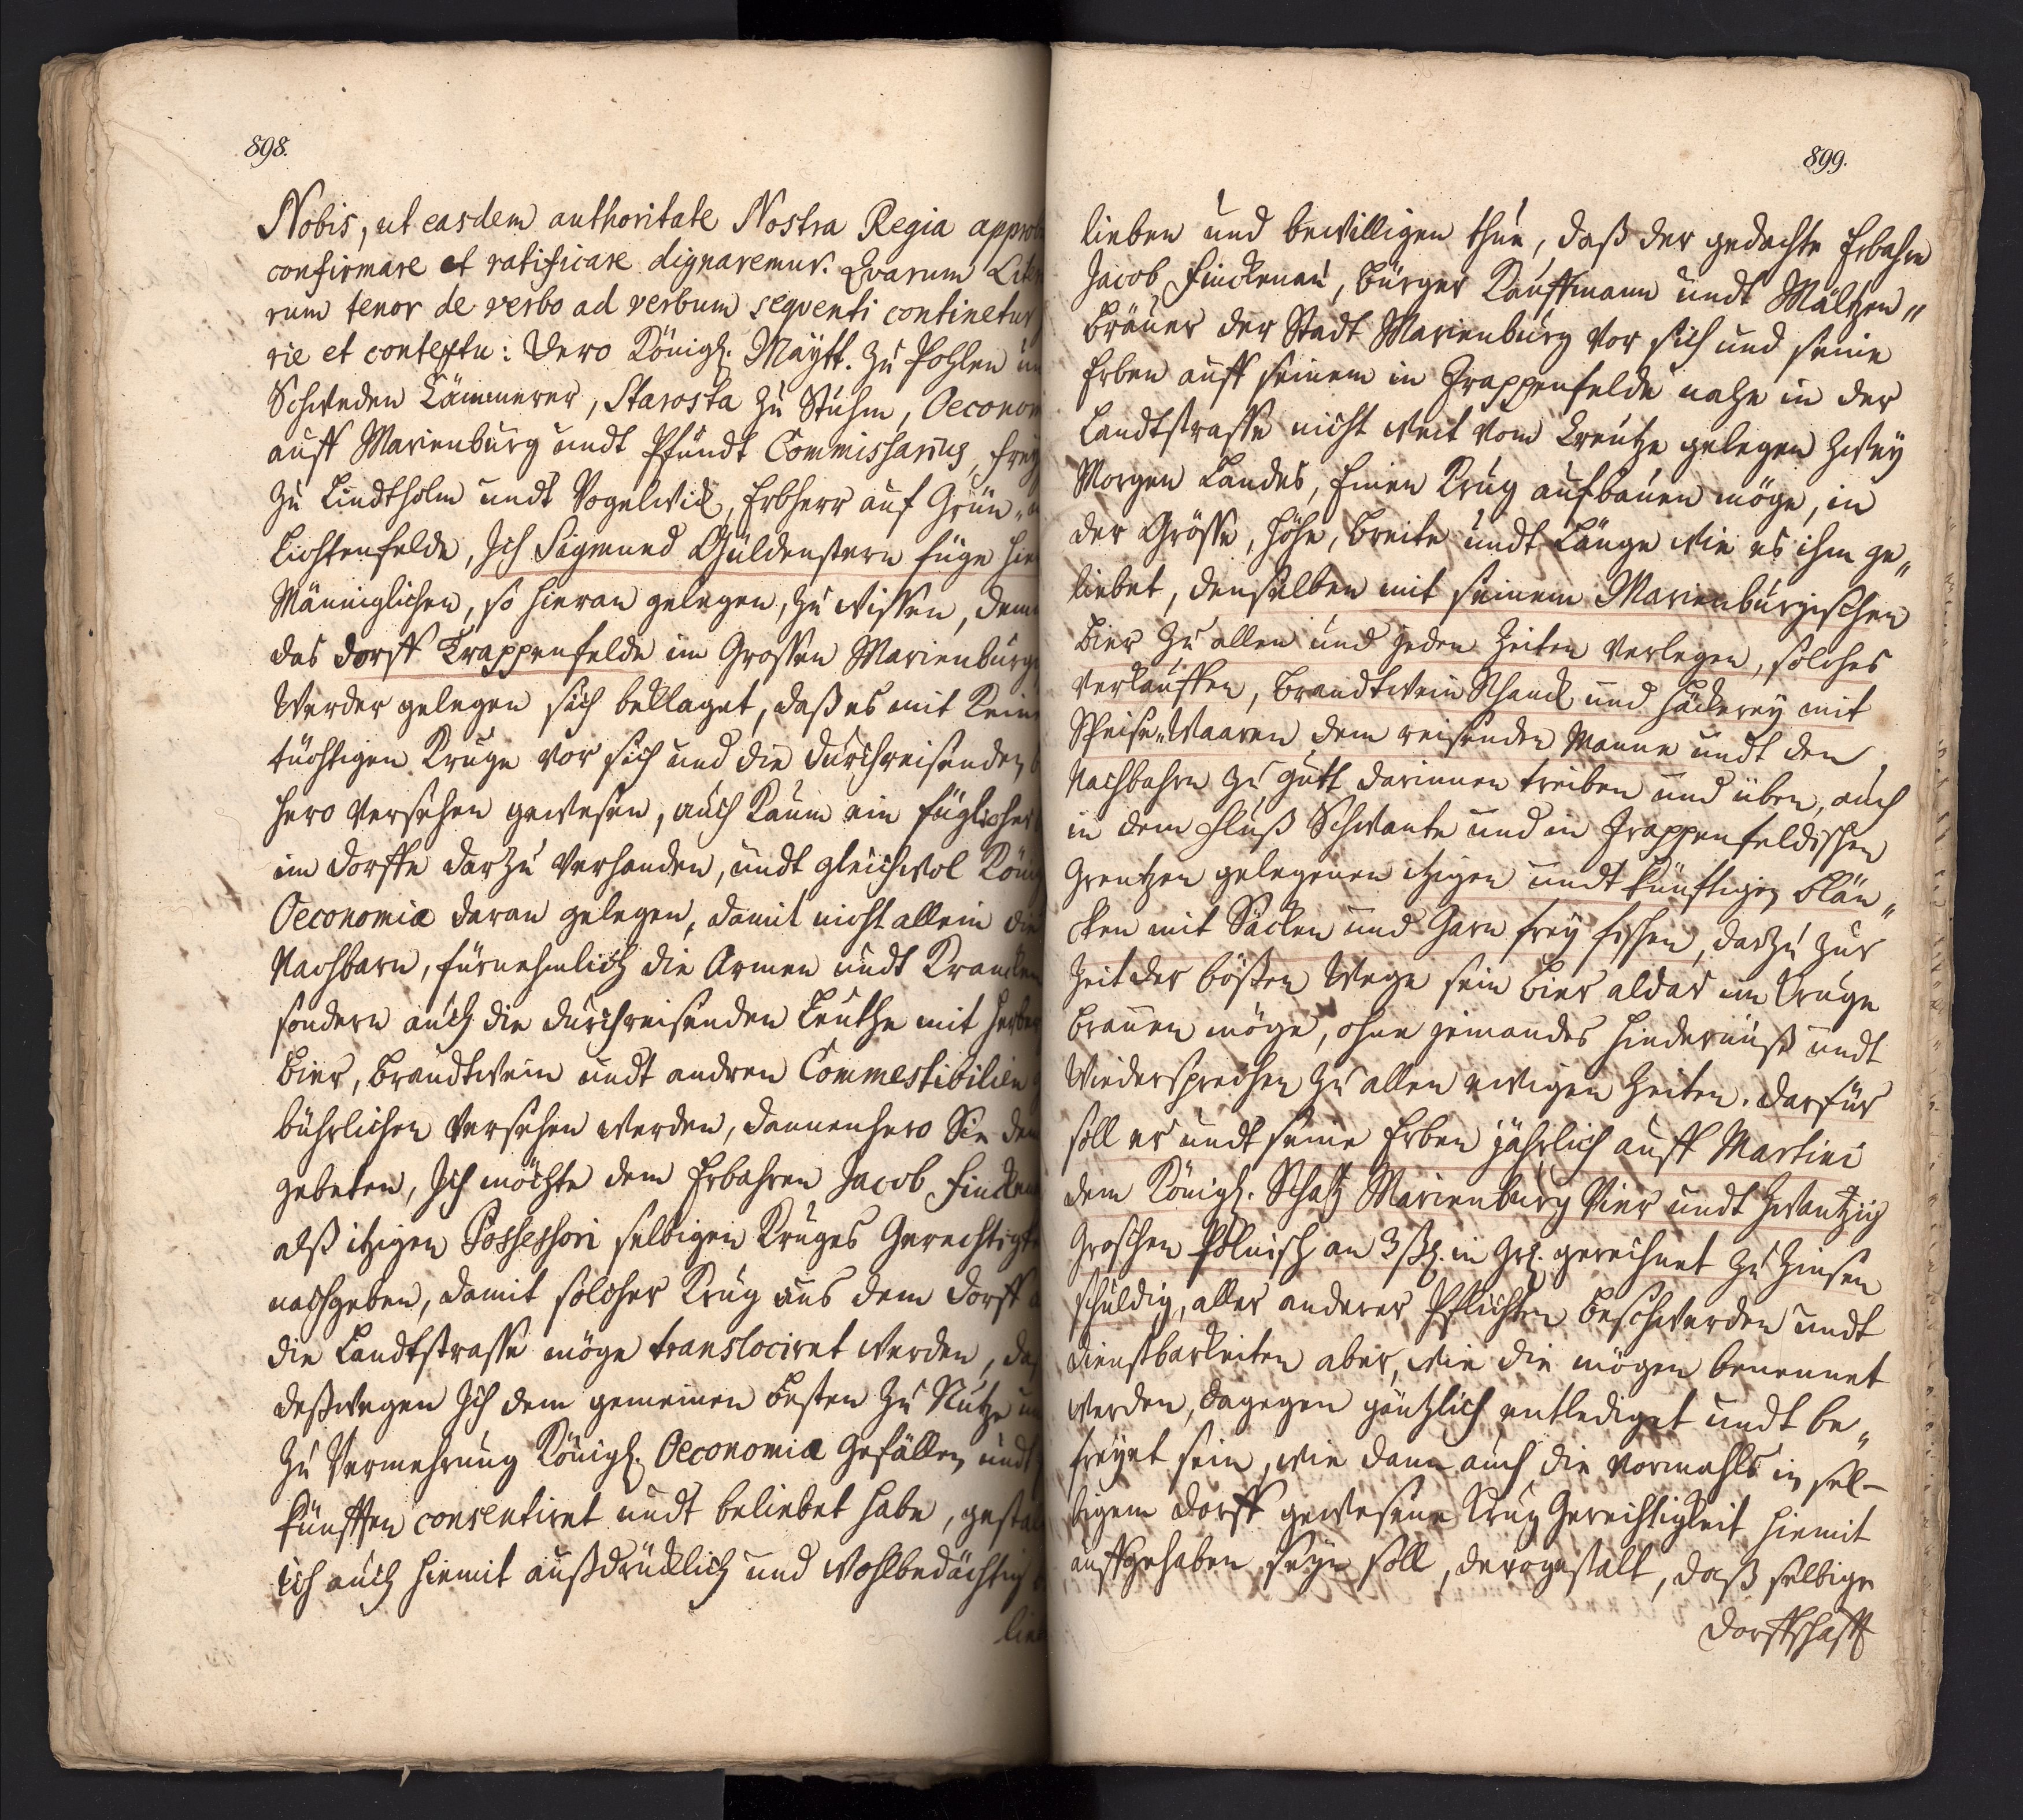 898.
Nobis, ut easdem authoritate Nostra Regia appro
confirmare et ratificare dignaremur. Qvarum Lite
rum tenor de verbo ad verbum seqventi continetur
rie et contextu: Dero Königl. Maytt. zu Pohlen un
Schweden Cämmerer, Starosta zu Stuhm, Oeconom
auff Marienburg undt Pfundt Commissarius, frey
zu Lindtholm undt Vogelwick, Erbherr auf Grün„
Lichtenfelde, Ich Sigmund Güldenstern füge hie
Männiglichen, so hieran gelegen, zu wissen, dem
das dorff Trappenfelde im Grossen Marienburg
Werder gelegen sich beklaget, daß es mit Kein
tüchtigen Kruge vor sich und die durchreisenden b
hero versehen gewesen, auch kaum ein füglicher
im dorffe darzu verhanden, undt gleichwol König
Oeconomia daran gelegen, damit nicht allein die
Nachbarn, fürnehmlich die Armen undt Krancken
sondern auch die durchreisenden Leuthe mit Herber
Bier, Brandtwein undt andren Commestibilien g
bührlichen versehen werden, dannenhero Sie den
gebeten, Ich möchte dem Erbahren Jacob Fincken
alß itzigen Possessori selbigen Kruges Gerechtigk
nachgeben, damit solcher Krug aus dem dorff a
die Landtstrasse möge translociret werden, daß
deßwegen Ich dem gemeinen besten zu Nutze un
zu Vermehrung Königl. Oeconomia Gefällen undt
künfften consentiret undt beliebet habe, gestal
ich auch hiemit außdrücklich und wohlbedächtig b
lie
899.
lieben und bewilligen thue, daß der gedachte Erbahre
Jacob Finckenau, Bürger Kauffmann undt Mältzen„
bräuer der Stadt Marienburg vor sich und seine
Erben auff seinem in Trappenfelde nahe in der
Landtstrasse nicht weit vom Creutze gelegen zwey
Morgen Landes, Einen Krug aufbauen möge, in
der Grösse, Höhe, Breite undt Länge wie es ihm ge„
liebet, denselben mit seinem Marienburgischen
Bier zu allen und jeden Zeiten verlegen, solches
verkauffen, Brandtwein Schanck und Häckerey mit
Speise„Waaren dem reisenden Manne undt den
Nachbahren zu gutt darinnen treiben und üben, auch
in dem Fluß Schwante und in Trappenfeldischen
Grentzen gelegenen itzigen undt künfftigen Blän„
cken mit Säcken und Garn frey fischen, darzu zur
Zeit der bößen Wege sein Bier aldar im Kruge
brauen möge, ohne jemandes Hindernüß undt
Wiedersprechen zu allen ewigen Zeiten. Darfür
soll er undt seine Erben jährlich auff Martini
dem Königl. Schatz Marienburg Vier undt zwantzig
Groschen Polnisch an 3 ßl. in Grl. gerechnet zu Zinsen
schuldig, aller anderer Pflichten Beschwerden undt
dienstbarkeiten aber, wie die mögen benennet
werden, dagegen gäntzlich entlediget undt be„
freyet sein, wie dann auch die vormahls in sel-
bigem dorff gewesene Krug Gerechtigkeit hiemit
auffgehaben seyn soll, derogestalt, daß selbige
Dorffschafft